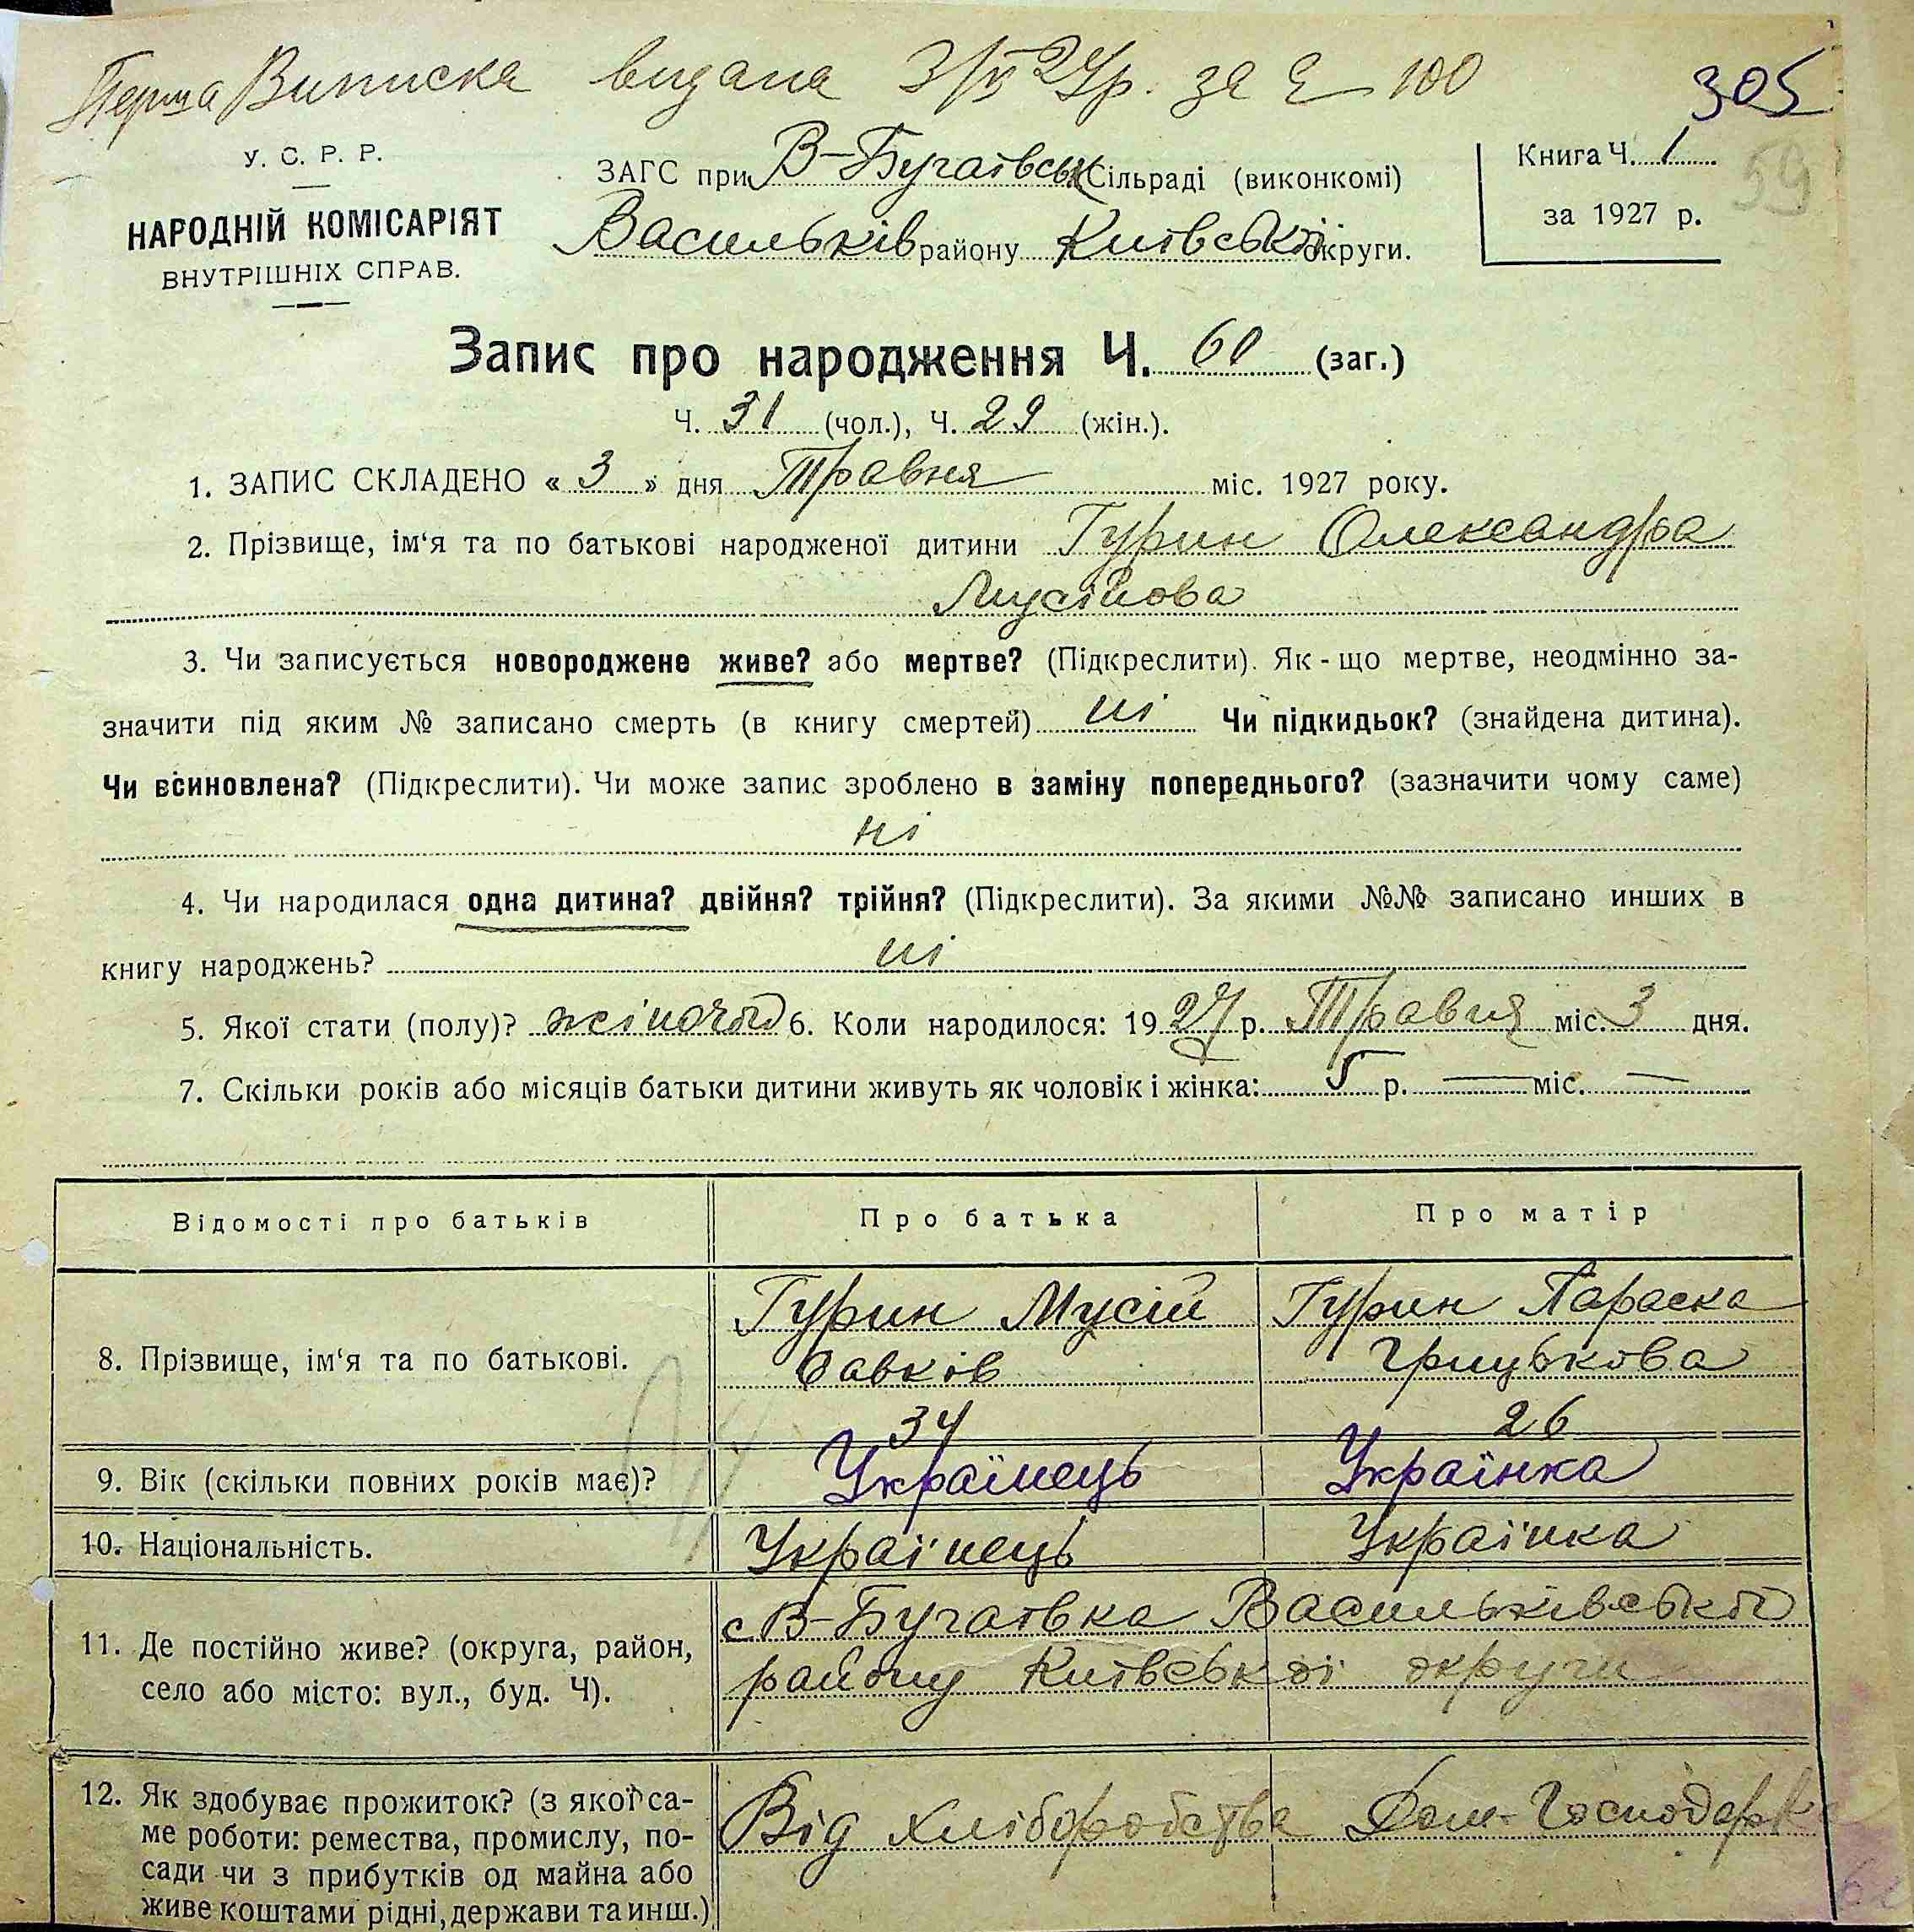 Перша Виписка видана 3/V 27р. за № 100
305
59
У. С. Р. Р.
НАРОДНІЙ КОМІСАРІЯТ
ВНУТРІШНІХ СПРАВ.
ЗАГС при В-Бугаївськ Сільраді (виконкомі)
Васильків району Київської округи.
Книга Ч. 1
за 1927 р.
Запис про народження Ч. 60 (заг.)
Ч. 31 (чол.), Ч. 29 (жін.).
1. ЗАПИС СКЛАДЕНО « 3 » дня Травня міс. 1927 року.
2. Прізвище, ім‘я та по батькові народженої дитини Гурин Олександра
Мусійова
3. Чи записується новороджене живе? або мертве? (Підкреслити). Як-що мертве, неодмінно за-
значити під яким № записано смерть (в книгу смертей) ні Чи підкидьок? (знайдена дитина).
Чи всиновлена? (Підкреслити). Чи може запис зроблено в заміну попереднього? (зазначити чому саме)
ні
4. Чи народилася одна дитина? двійня? трійня? (Підкреслити). За якими №№ записано инших в
книгу народжень? ні
5. Якої стати (полу)? жіночої 6. Коли народилося: 1927 р. Травня міс. 3 дня.
7. Скільки років або місяців батьки дитини живуть як чоловік і жінка: 5 р. — міс. —
Відомості про батьків Про батька Про матір
8. Прізвище, ім‘я та по батькові. Гурин Мусій Гурин Параска
Савків Грицькова
34 26
9. Вік (скільки повних років має)? Українець Українка
10. Національність. Українець Українка
11. Де постійно живе? (округа, район,
село або місто: вул., буд. Ч).
с В-Бугаївка Васильківської
району Київської округи
12. Як здобуває прожиток? (з якої са-
ме роботи: ремества, промислу, по-
сади чи з прибутків од майна або
живе коштами рідні, держави та инш.)
Від хліборобства Дом-Господарка